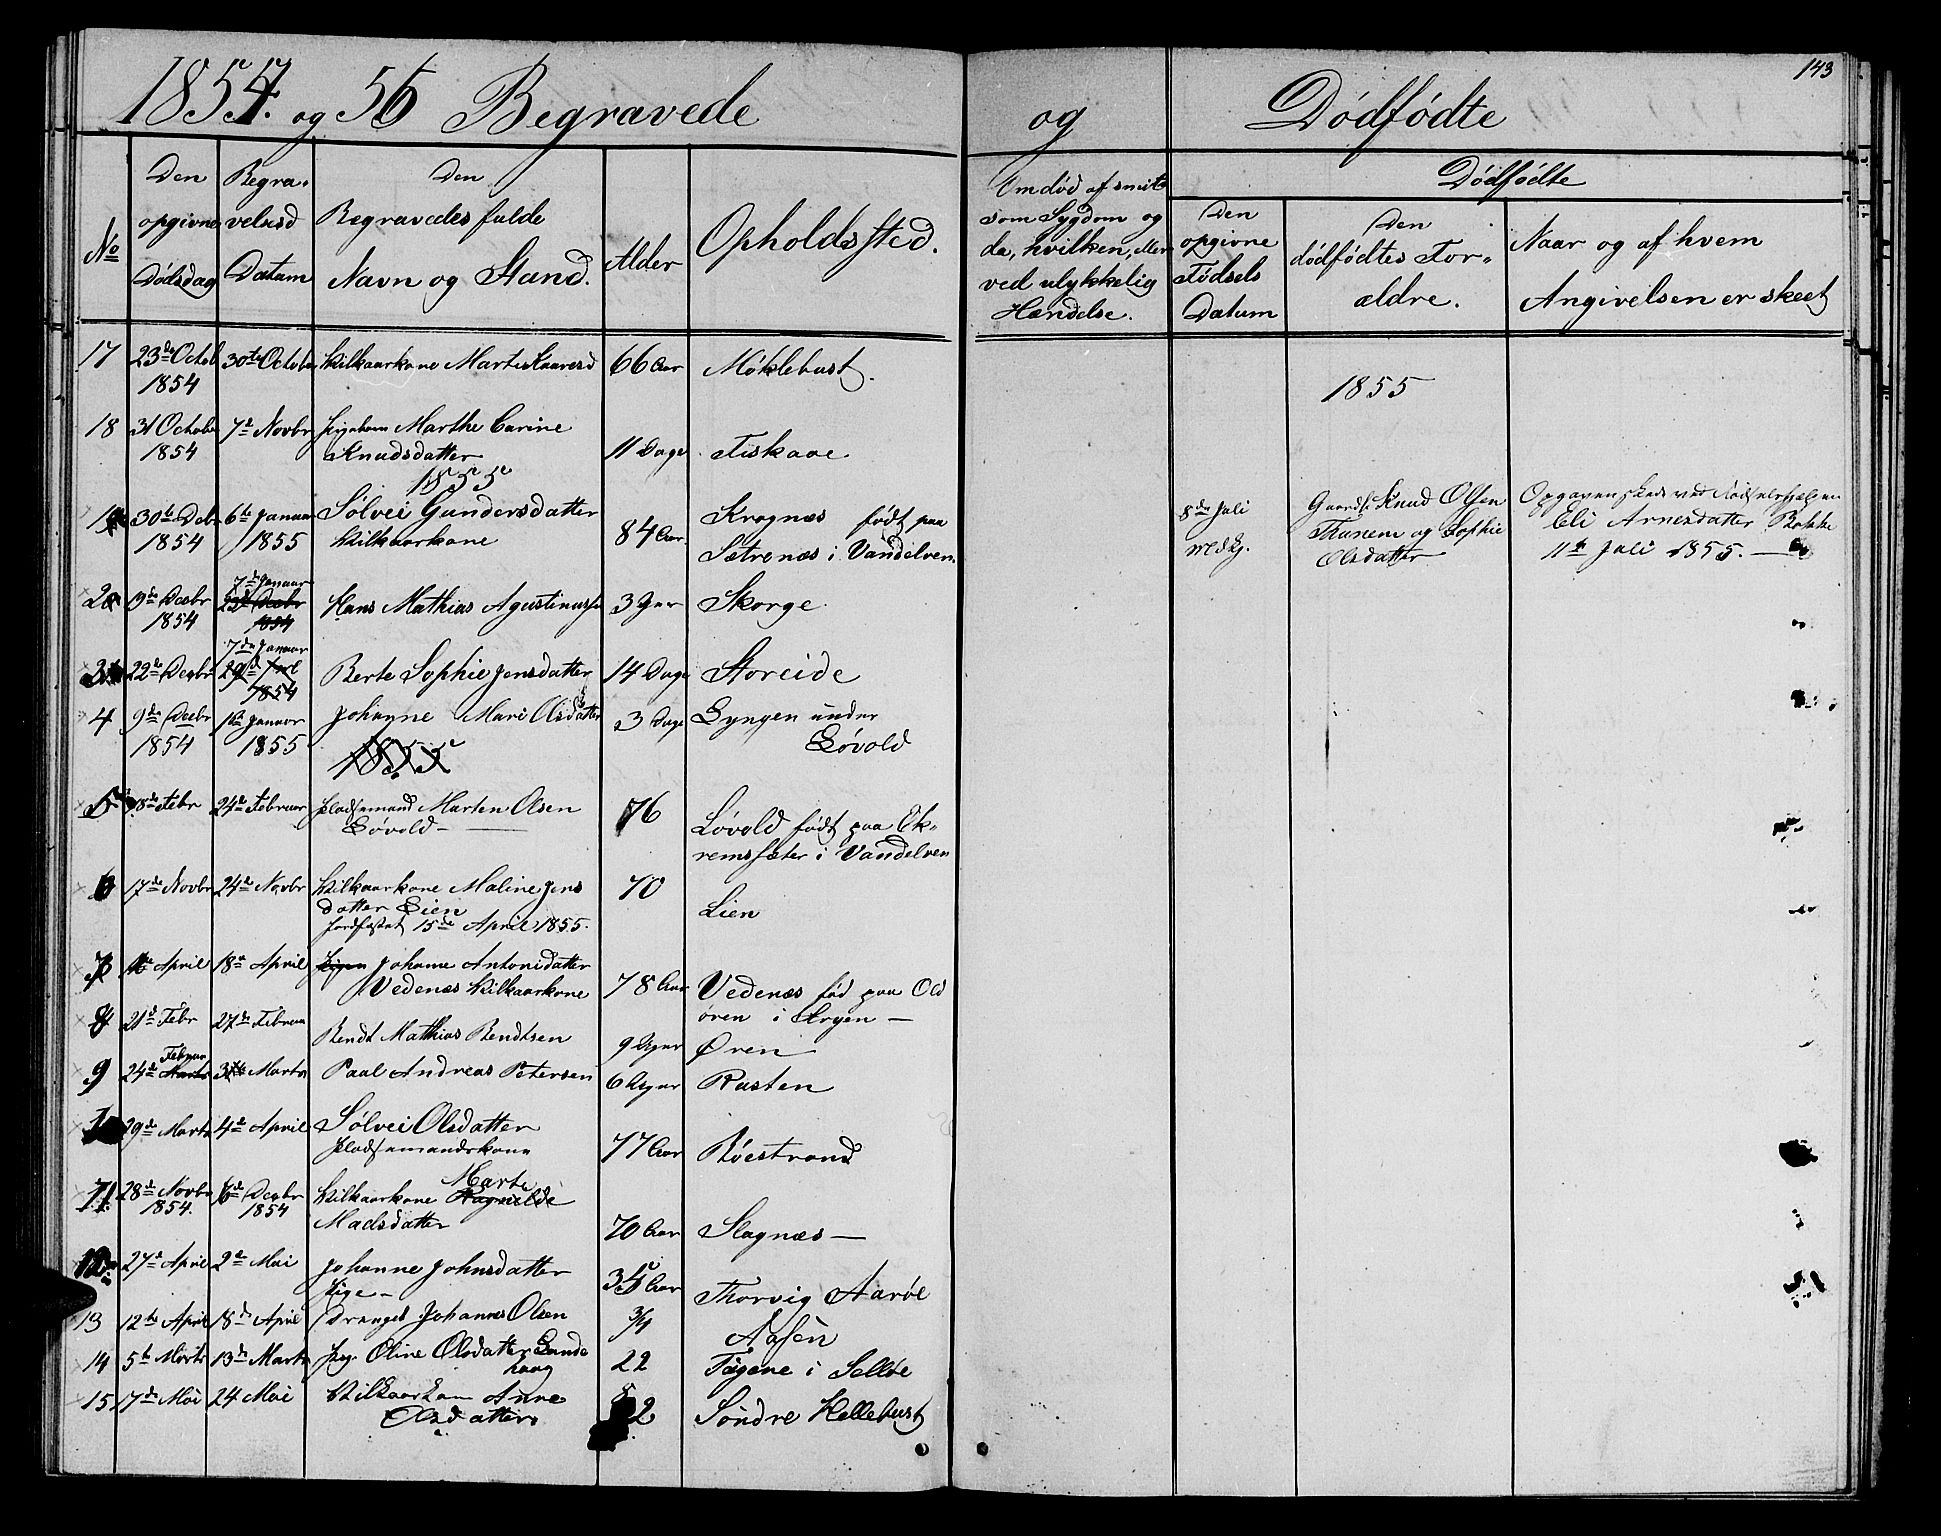 143
1854. og 56 Begravede og Dødfødte
No
Den opgivne Dødsdag
Begravelsesd Datum
Den Begravedes fulde Navn og Stand.
Alder
Opholdssted.
Om død af smitsom Sygdom og da, hvilken, eller ved ulykkelig Hændelse.
Dødfødte
Den opgivne Fødsels Datum
Den dødfødtes Forældre.
Naar og af hvem Angivelsen er skeet
17 23de Octob 1854 30te October Kilkaarkone Marte Knaresd 66 Aar Møklebust.
18 31 October 1854 7de Novbr Pigebarn Marthe Carine Knudsdatter 11 Dage Fiskaae
1855
1 30te Decbr 1854 6te Januar 1855 Sølvei Gundersdatter Kilkaarkone 84 Aar Kragnæs født paa Sætrenæs i Vandelven
2 19de Decbr 1854 7de Januar Hans Mathias Agustinussen 3 Aar Skorge
3 22de Decbr 7de Januar 1854 Berte Sophie Jensdatter 14 Dage Storeide
4 9de Decbr 1854 1te Januar 1855 Johanne Mari Olsdatter 3 Dage Lyngen under Løvold
1855
5 18de Febr 24de Februar Pladsemand Marten Olsen Løvold 76 Løvold født paa Ekremsæter i Vandelven
6 17de Novbr 24de Novbr Kilkaarkone Maline Jensdatter Lien 70 Lien
Jordfæstet 15de April 1855.
7 April 18de April Johanne Antonidatter Vedenæs Kilkaarkone 78 Aar Vedenæs fød paa Oldøren i Stryen
8 21de Febr 27de Februar Bendt Mathias Bendtsen 9 Uger Øren
9 24de Februar Marts Paul Andreas Petersen 6 Uger Rusten
29de Marts 4de April Sølvei Olsdatter Pladsemandskone 77 Aar Røestrand
11. 28de Novbr 1854. 6te Decbr 1854 Kilkaarkone Marte Madsdatter 70 Aar Slagnæs
12 27de April 2de Mai Johanne Johnsdatter Pige 35 Aar Thorvig Aarøe
13 12te April 18de April Drenged. Johannes Olsen 3/4 Aasen
14 5te Marts 13de Marts Pige Oline Olsdatter Sandehaug 22 Tægene i Selløe
15. 17de Mai 24 Mai Kilkaarkone Anne Olsdatter. 82 Søndre Hellebust
1855
8de Juli Gaardb Knud Olsen Thunem og Sophie Olsdatter Opgaven skede ved Eli Arnesdatter Bakke 11te Juli 1855.